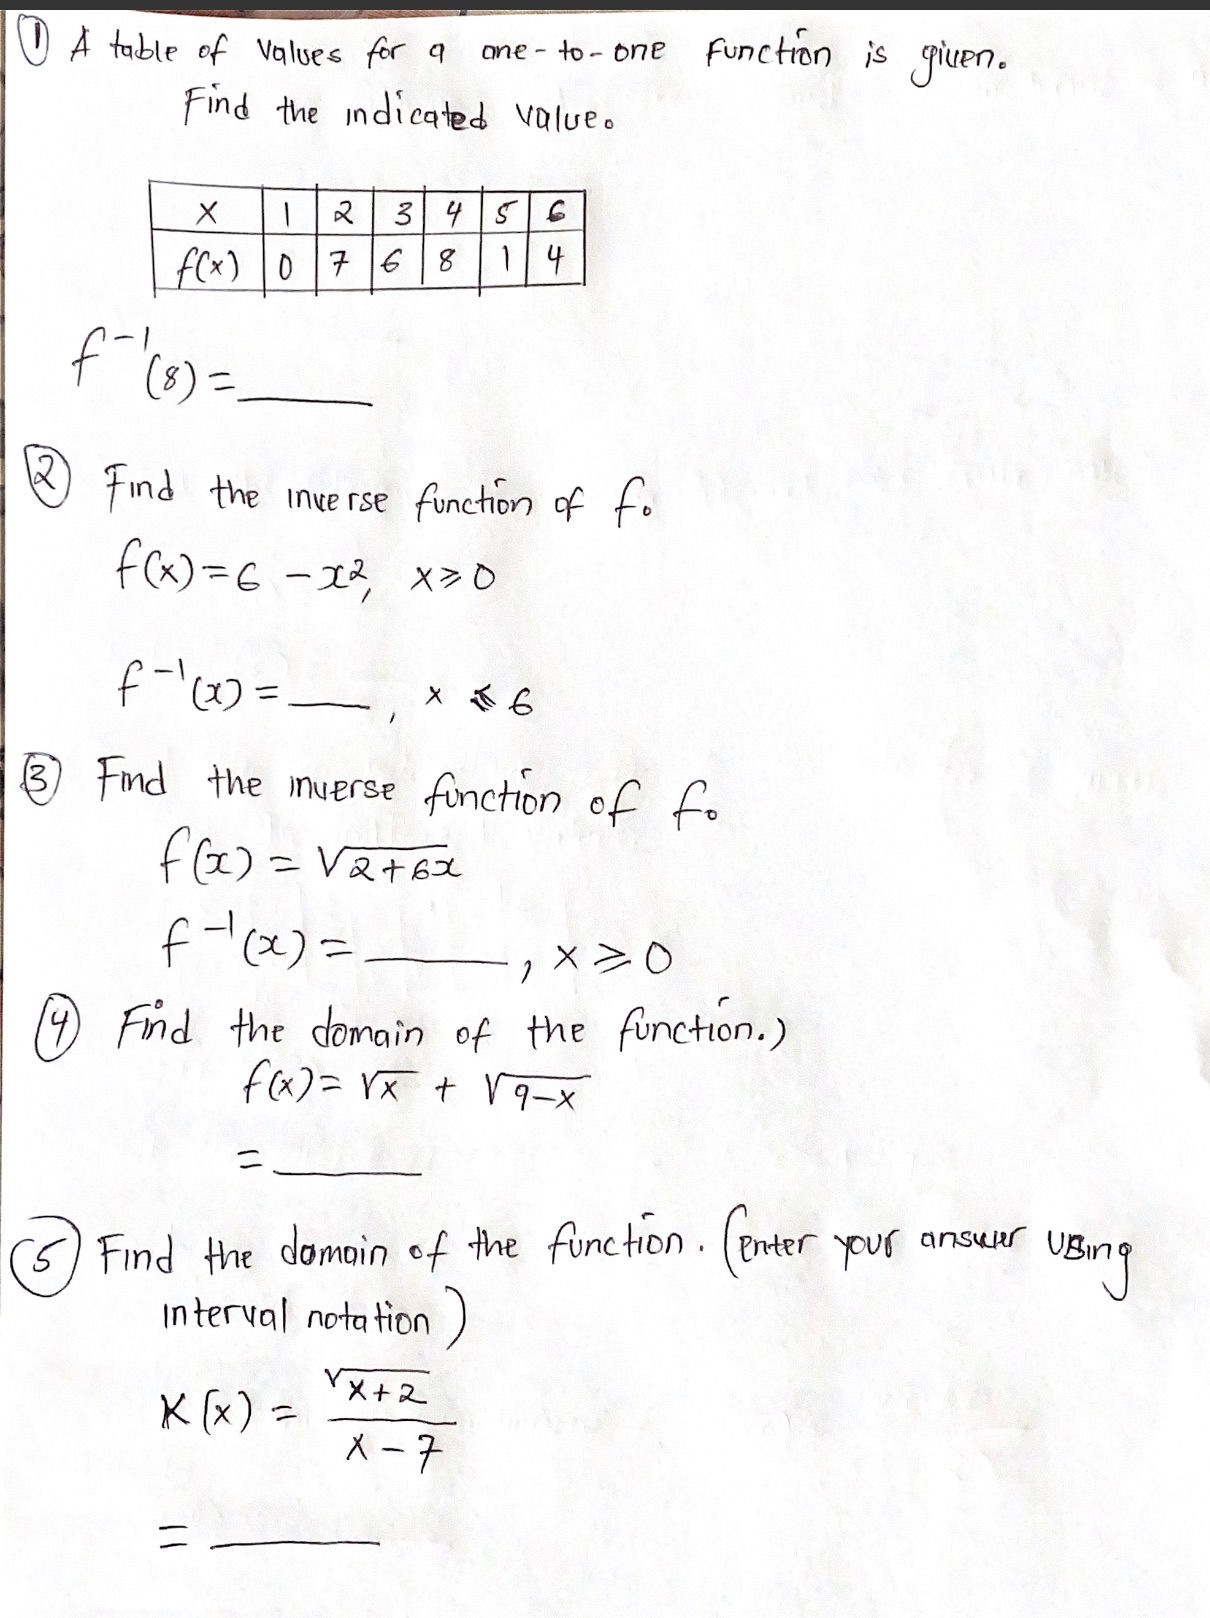 ① A table of values for a one-to-one function is given.
Find the indicated value.
x 1 2 3 4 5 6
f(x) 0 7 6 8 1 4
f⁻¹(8) = ____
② Find the inverse function of f.
f(x) = 6 - x², x ≥ 0
f⁻¹(x) = ____, x ≤ 6
③ Find the inverse function of f.
f(x) = √(2+6x)
f⁻¹(x) = ____, x ≥ 0
④ Find the domain of the function.)
f(x) = √x + √(9-x)
= ____
⑤ Find the domain of the function. (enter your answer using
interval notation)
K(x) = √(x+2) / (x - 7)
= ____